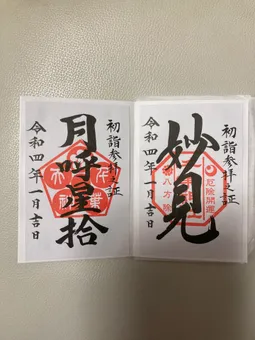 初詣参拝之証
妙見
厄除開運
八方除
令和四年一月吉日
初詣参拝之証
月呼星拾
令和四年一月吉日